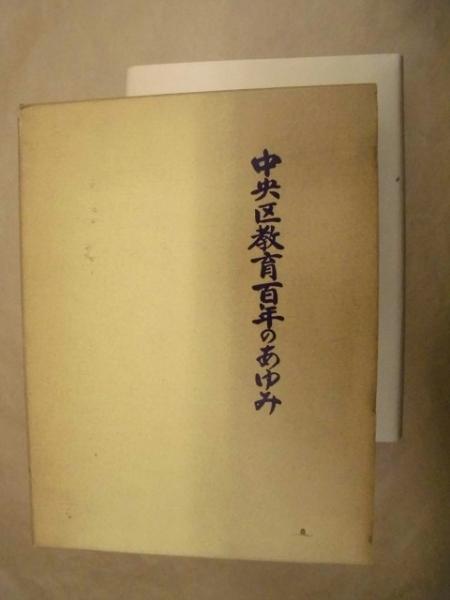 中央区教育百年のあゆみ